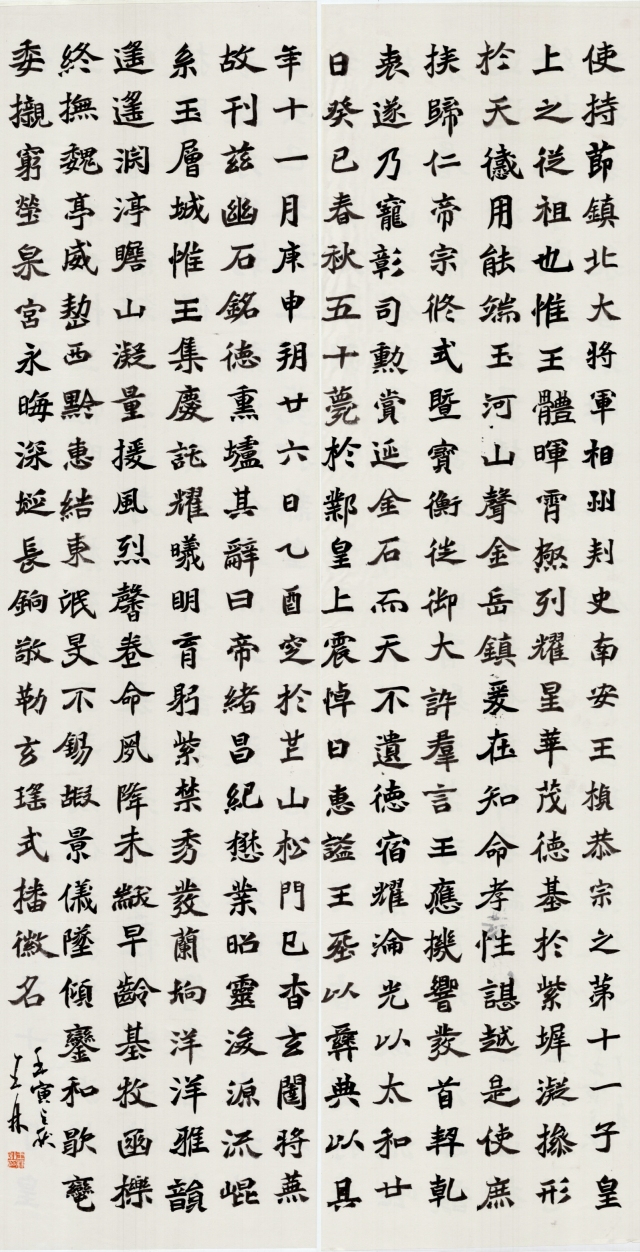 使持節鎮北大將軍相州刺史南安王楨恭宗之第十一子皇
上之從祖也惟王體暉霄極列耀星華茂德基於紫墀凝操形
於天儀用能端玉河山聲金岳鎮爰在知命孝性諶越是使庶
族歸仁帝宗攸式暨寶衡徙御大許羣言王應機響發首契乾
衷遂乃寵彰司勳賞延金石而天不遺德宿耀淪光以太和廿
日癸巳春秋五十薨於鄴皇上震悼曰惠謚王葬以彝典以其
年十一月庚申朔廿六日乙酉窆於芒山松門已杳玄闥將蕪
故刊茲幽石銘德熏壚其辭曰帝緒昌紀懋業昭靈浚源流崐
系玉層城惟王集慶託耀曦明育躬紫禁秀發蘭坰洋洋雅韻
遙遙淵渟瞻山凝量援風烈馨卷命夙降未黻早齡基牧幽櫟
終撫魏亭威整西黔惠結東氓旻不錫嘏景儀墜傾鑾和歇
委櫬窮塋泉宮永晦深埏長敬勒玄瑤式播徽名
壬寅之秋